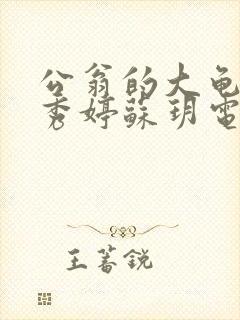 公翁的大龟
秀婷苏玥電
王蕃锐